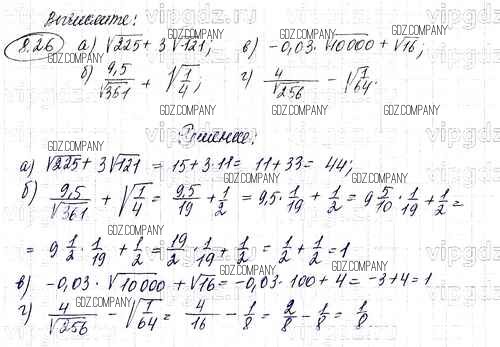 Вычислите:
8.26 а) √225 + 3√121; в) -0,03 · √10000 + √16;
б) 9,5/√361 + √1/4; г) 4/√256 - √1/64.
Решение:
а) √225 + 3√121 = 15 + 3·11 = 11 + 33 = 44;
б) 9,5/√361 + √1/4 = 9,5/19 + 1/2 = 9,5 · 1/19 + 1/2 = 9 5/10 · 1/19 + 1/2 =
= 9 1/2 · 1/19 + 1/2 = 19/2 · 1/19 + 1/2 = 1/2 + 1/2 = 1
в) -0,03 · √10000 + √16 = -0,03 · 100 + 4 = -3 + 4 = 1
г) 4/√256 - √1/64 = 4/16 - 1/8 = 2/8 - 1/8 = 1/8.